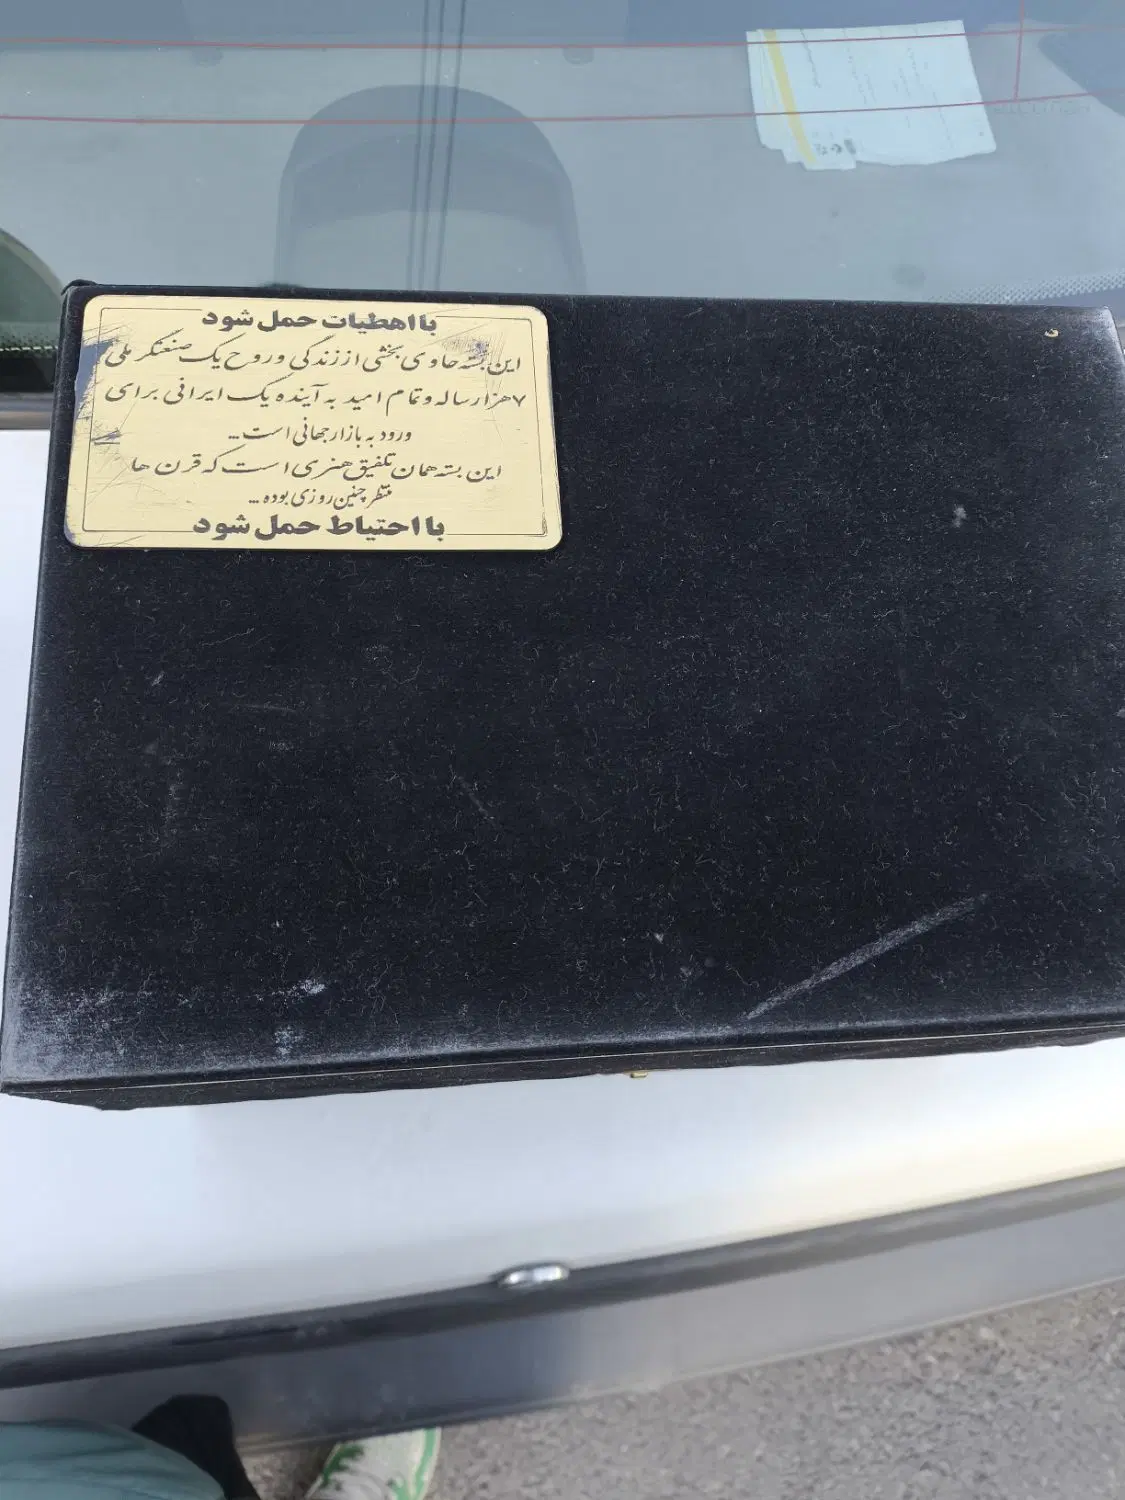 با اهطیات حمل شود
این بسته حاوی بخشی از زندگی و روح یک صنعتگر ملی
۷هزار ساله و تمام امید به آینده یک ایرانی برای
ورود به بازار جهانی است...
این بسته همان تلفیق هنری است که قرن ها
منتظر چنین روزی بوده...
با احتیاط حمل شود